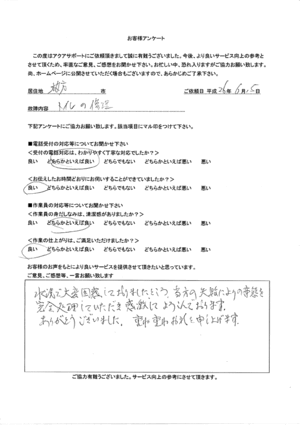 お客様アンケート
この度はアクアサポートにご依頼頂きまして誠に有難うございました。今後、より良いサービス向上の参考と
させて頂くため、率直なご意見、ご感想をお聞かせ下さい。お忙しい中、恐れ入りますがご協力お願い致します。
尚、ホームページに公開させていただく場合もございますので、あらかじめご了承下さい。
居住地 枚方 市 ご依頼日 平成 26年 6月 15日
故障内容 トイレの
下記アンケートにご協力お願い致します。該当項目にマル印をつけて下さい。
■電話受付の対応等についてお聞かせ下さい
<受付の電話対応は、わかりやすく丁寧な対応でしたか？>
良い どちらかといえば良い どちらでもない どちらかといえば悪い 悪い
<お伝えしたお時間どおりにお伺いすることができていましたか？>
良い どちらかといえば良い どちらでもない どちらかといえば悪い 悪い
■作業員の対応等についてお聞かせ下さい
<作業員の身だしなみは、清潔感がありましたか？>
良い どちらかといえば良い どちらでもない どちらかといえば悪い 悪い
<作業の仕上がりは、ご満足いただけましたか？>
良い どちらかといえば良い どちらでもない どちらかといえば悪い 悪い
お客様のお声をもとにより良いサービスを提供させて頂きたいと思っています。
ご意見、ご感想等、一言お願い致します
水漏で大変困惑しておりましたところ、当方の失敗によりの事態を
完全処理していただき感激してよろこんでおります。
ありがとうございました。重ね重ねお礼を申し上げます。
ご協力有難うございました。サービス向上の参考にさせて頂きます。